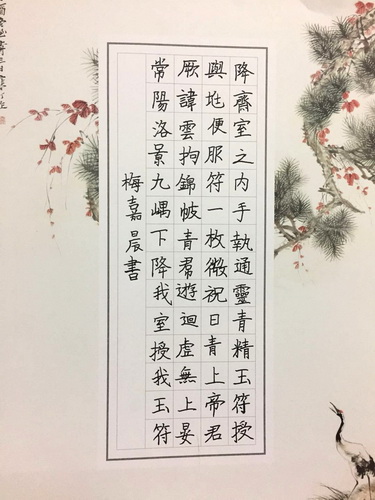 降齋室之内手執通靈青精玉符授
與地便服符一枚微祝曰青上帝君
厥諱雲拘錦帔青帬遊迴虛無上晏
常陽洛景九嵎下降我室授我玉符
梅嘉晨書